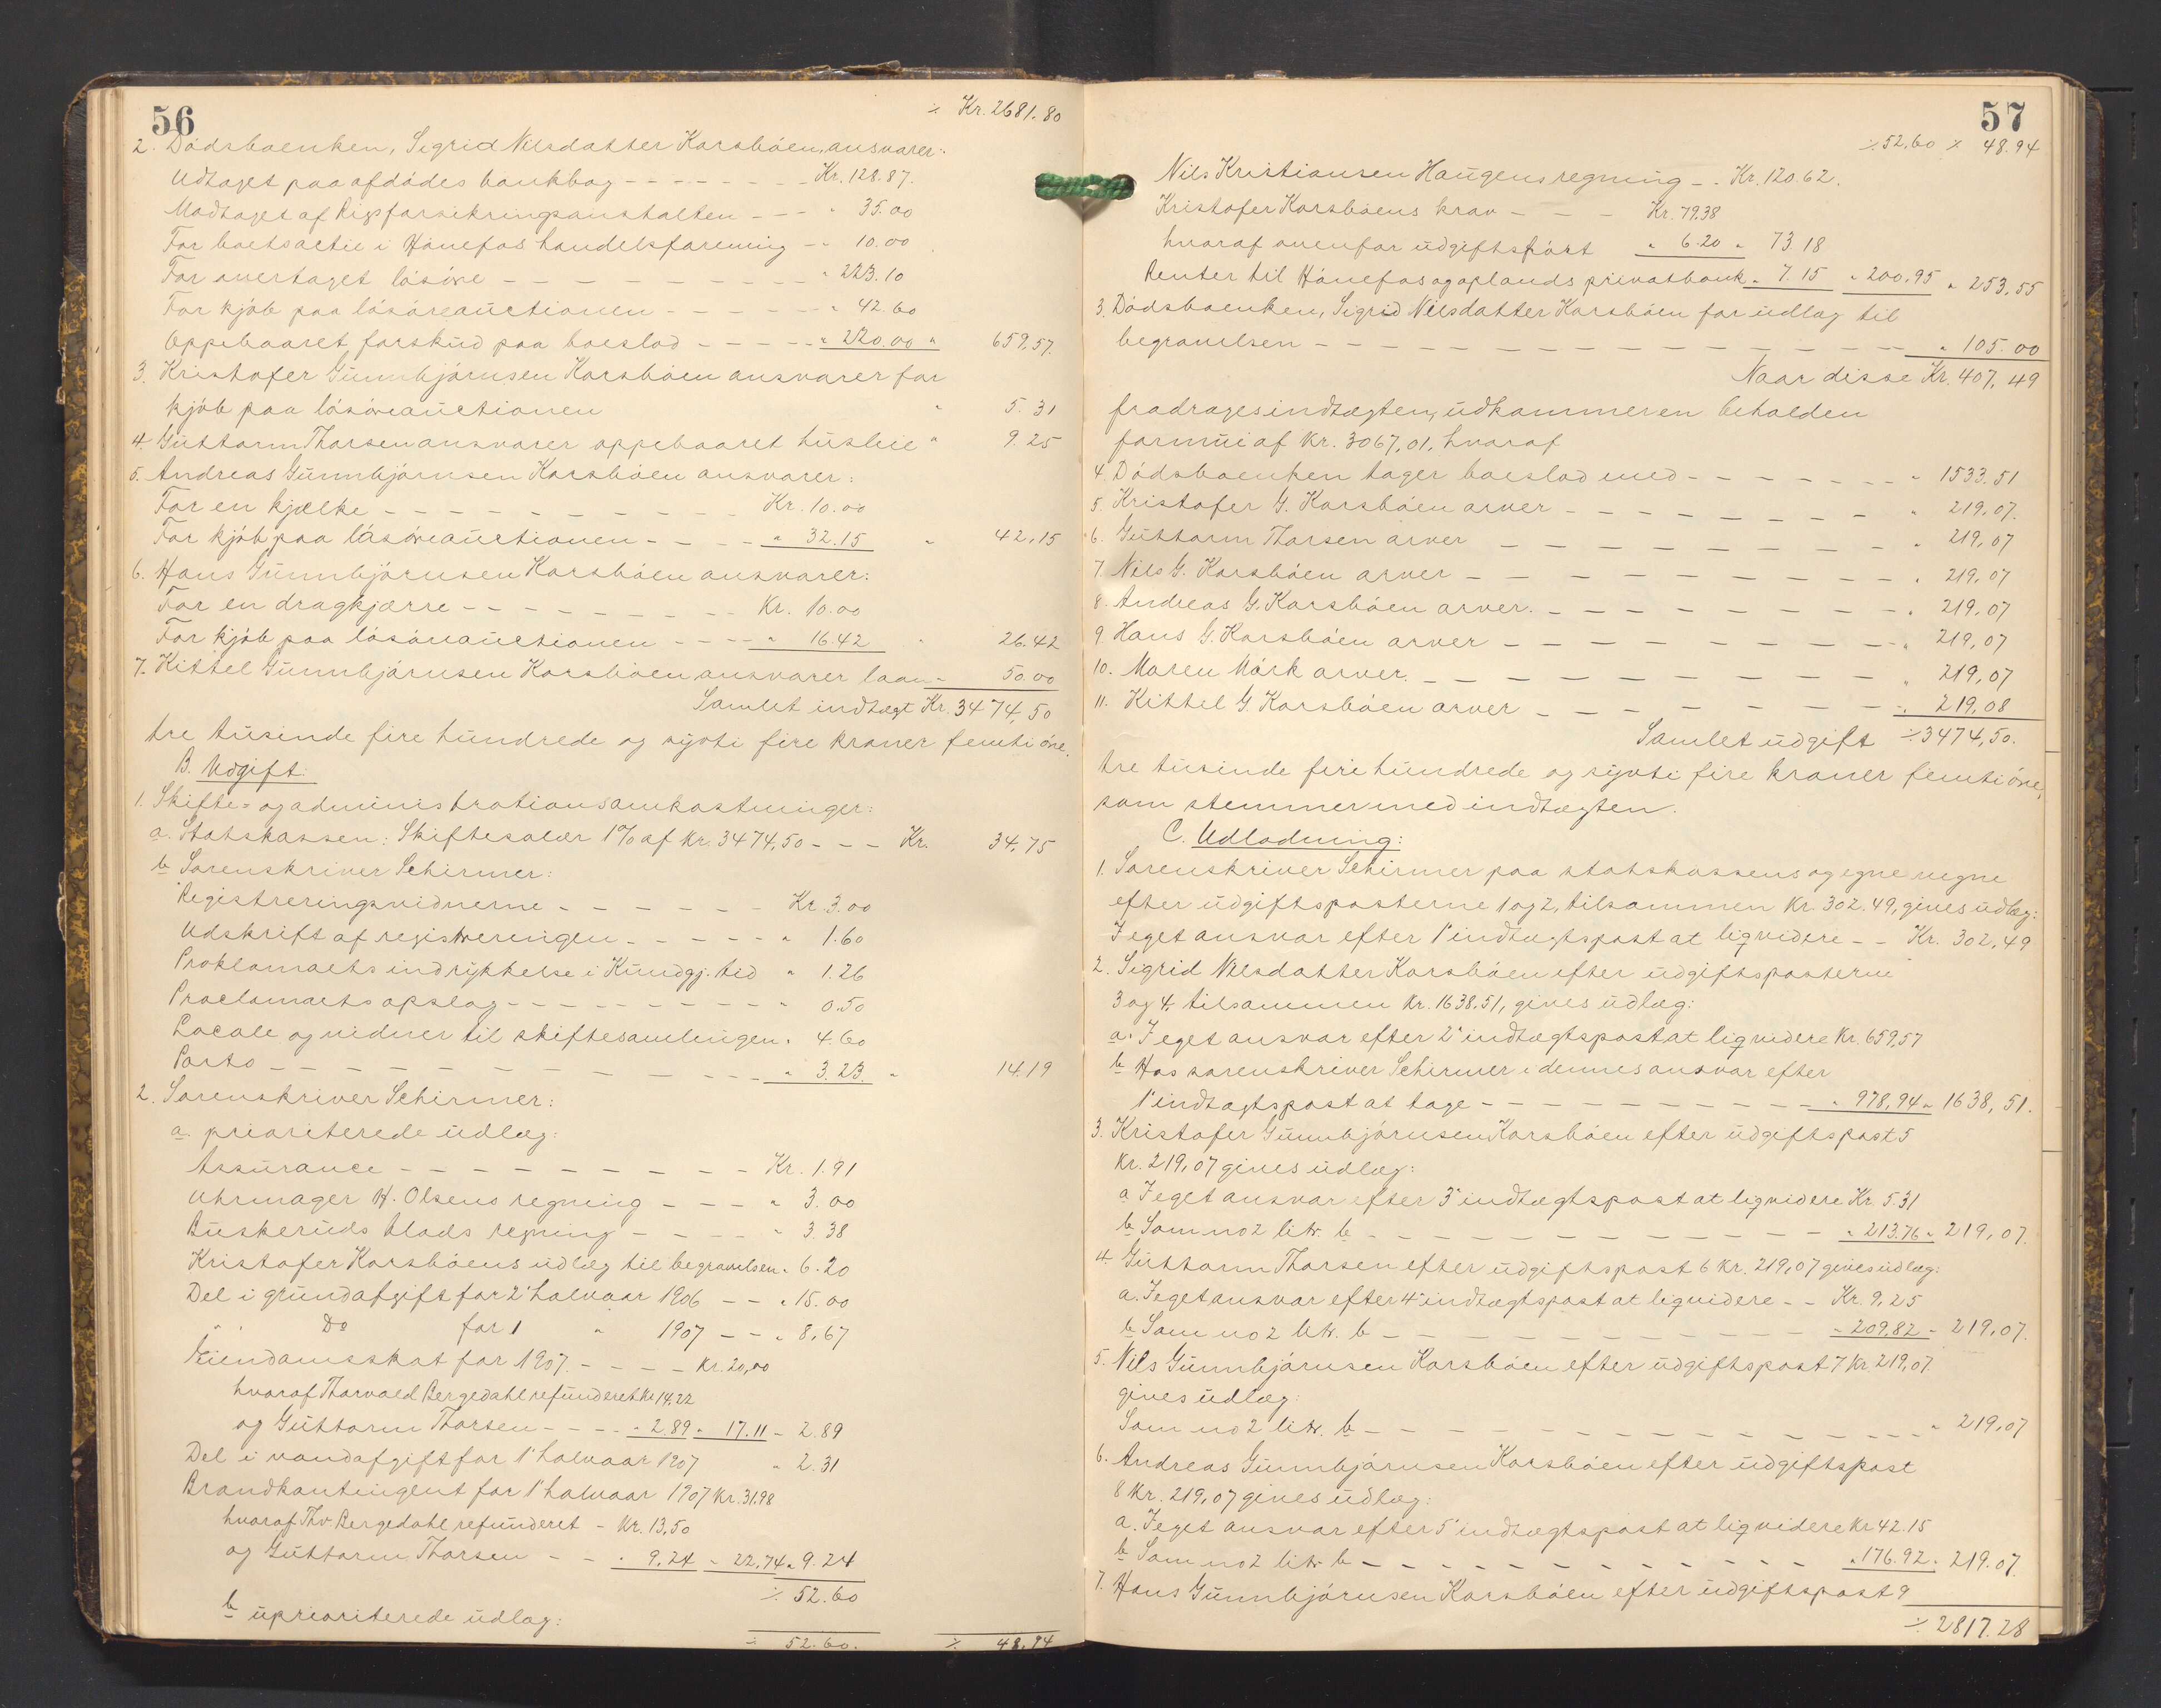 56
⁒ Kr. 2681.80
2. Dödsboenken, Sigrid Nilsdatter Korsböen, ansvarer:
Udtaget paa afdödes bankbog - - - - - - - Kr. 128.87.
Modtaget af Rigsforsikringsanstalten - - - " 35.00
For boets actie i Hönefos handelsforening - " 10.00
For overtaget lösöre - - - - - - - - - " 223.10
For kjöb paa lösöreauctionen - - - - - - " 42.60
Oppebaaret forskud paa boeslod - - - - - " 220.00 " 659,57.
3. Kristofer Gunnbjörnsen Korsböen ansvarer for
kjöb paa lösöreauctionen " 5.31
4. Guttorm Thorsen ansvarer oppebaaret husleie " 9.25
5. Andreas Gunnbjörnsen Korsböen ansvarer:
For en kjælke - - - - - - - - - - Kr. 10.00
For kjöb paa lösöreauctionen - - - - " 32.15 " 42,15
6. Hans Gunnbjörnsen Korsböen ansvarer:
For en dragkjærre - - - - - - - - Kr. 10.00
For kjöb paa lösöreauctionen - - - - " 16.42 " 26.42
7. Kittel Gunnbjörnsen Korsböen ansvarer laan - 50.00
Samlet indtægt Kr. 3474,50
tre tusinde fire hundrede og sytti fire kroner femti öre.
B. Udgift:
1. Skifte- og administrationsomkostninger:
a. Statskassen: Skiftesalær 1% af kr. 3474,50 - - - Kr. 34,75
b Sorenskriver Schirmer:
Registreringsvidnerne - - - - - - - Kr. 3.00
Udskrift af registreringen - - - - - " 1.60
Proklamaets indrykkelse i Kundgj. tid " 1.26
Proclamaets opslag - - - - - - - - - " 0.50
Locale og vidner til skiftesamlingen " 4.60
Porto - - - - - - - - - - - - - - " 3.23. " 14.19
2. Sorenskriver Schirmer:
a. prioriterede udlæg:
Assurance - - - - - - - - - - Kr. 1.91
Uhrmager H. Olsens regning - - - " 3.00
Buskeruds blads regning - - - - " 3.38
Kristofer Korsböens udlæg til begravelsen " 6.20
Del i grundafgift for 2' halvaar 1906 - - " 15.00
" " Do for 1 " 1907 - - " 8,67
Eiendomsskat for 1907 - - - - Kr. 20,00
hvoraf Thorvald Bergedahl refunderet kr 14,22
og Guttorm Thorsen - - - - " 2.89 " 17.11 - 2.89
Del i vandafgift for 1' halvaar 1907 " 2.31
Brandkontingent for 1' halvaar 1907 Kr. 31.98
hvoraf Thv Bergedahl refunderet - Kr. 13,50
og Guttorm Thorsen - - " 9,24 - 22,74 " 9.24
⁒ 52.60
b uprioriterede udlæg:
⁒ 52.60. ⁒ 48,94
57
⁒ 52,60 ⁒ 48.94
Nils Kristiansen Haugens regning - . Kr. 120.62.
Kristofer Korsböens krav - - - Kr. 79,38
hvoraf ovenfor udgiftsfört " 6.20 " 73.18
Renter til Hönefos og oplands privatbank " 7.15 " 200,95 " 253,55
3. Dödsboenken, Sigrid Nilsdatter Korsböen for udlæg til
begravelsen - - - - - - - - - - - - - - - " 105.00
Naar disse Kr. 407,49
fradrages indtægten, udkommer en beholden
formue af kr. 3067,01, hvoraf
4. Dödsboenken tager boeslod med - - - - - - - " 1533.51
5. Kristofer G. Korsböen arver - - - - - - - - " 219,07.
6. Guttorm Thorsen arver - - - - - - - - - " 219,07
7 Nils G. Korsböen arver - - - - - - - - - - " 219,07
8. Andreas G. Korsböen arver. - - - - - - - - - " 219,07
9. Hans G. Korsböen arver - - - - - - - - - - " 219,07
10. Maren Mörk arver. - - - - - - - - - - - " 219,07
11. Kittel G. Korsböen arver - - - - - - - - - " 219,08
Samlet udgift ⁒ 3474,50.
tre tusinde fire hundrede og sytti fire kroner femti öre,
som stemmer med indtægten.
C. Udlodning:
1. Sorenskriver Schirmer paa statskassens og egne vegne
efter udgiftsposterne 1 og 2, tilsammen kr. 302.49, gives udlæg:
I eget ansvar efter 1' indtægtspost at liqvidere - - Kr. 302,49
2. Sigrid Nilsdatter Korsböen efter udgiftsposterne
3 og 4, tilsammen kr. 1638,51, gives udlæg:
a. I eget ansvar efter 2' indtægtspost at liqvidere kr. 659,57
b Hos sorenskriver Schirmer i dennes ansvar efter
1' indtægtspost at tage - - - - - - - - - - " 978,94 " 1638,51.
3. Kristofer Gunnbjörnsen Korsböen efter udgiftspost 5
kr. 219,07 gives udlæg:
a. I eget ansvar efter 3' indtægtspost at liqvidere Kr. 5.31
b Som no 2 litr. b - - - - - - - - - - - - " 213.76 " 219,07.
4. Guttorm Thorsen efter udgiftspost 6 kr. 219,07 gives udlæg:
a. I eget ansvar efter 4' indtægtspost at liqvidere - - Kr. 9,25
b Som no 2 litr. b - - - - - - - - - - - - " 209,82 - 219,07.
5. Nils Gunnbjörnsen Korsböen efter udgiftspost 7 kr 219,07.
gives udlæg:
Som no 2 litr. b - - - - - - - - - - - - - - - " 219,07
6. Andreas Gunnbjörnsen Korsböen efter udgiftspost
8 kr. 219,07 gives udlæg:
a. I eget ansvar efter 5' indtægtspost at liqvidere kr 42.15
b Som no 2 litr b - - - - - - - - - - - - " 176.92 " 219.07.
7. Hans Gunnbjörnsen Korsböen efter udgiftspost 9
⁒ 2817.28